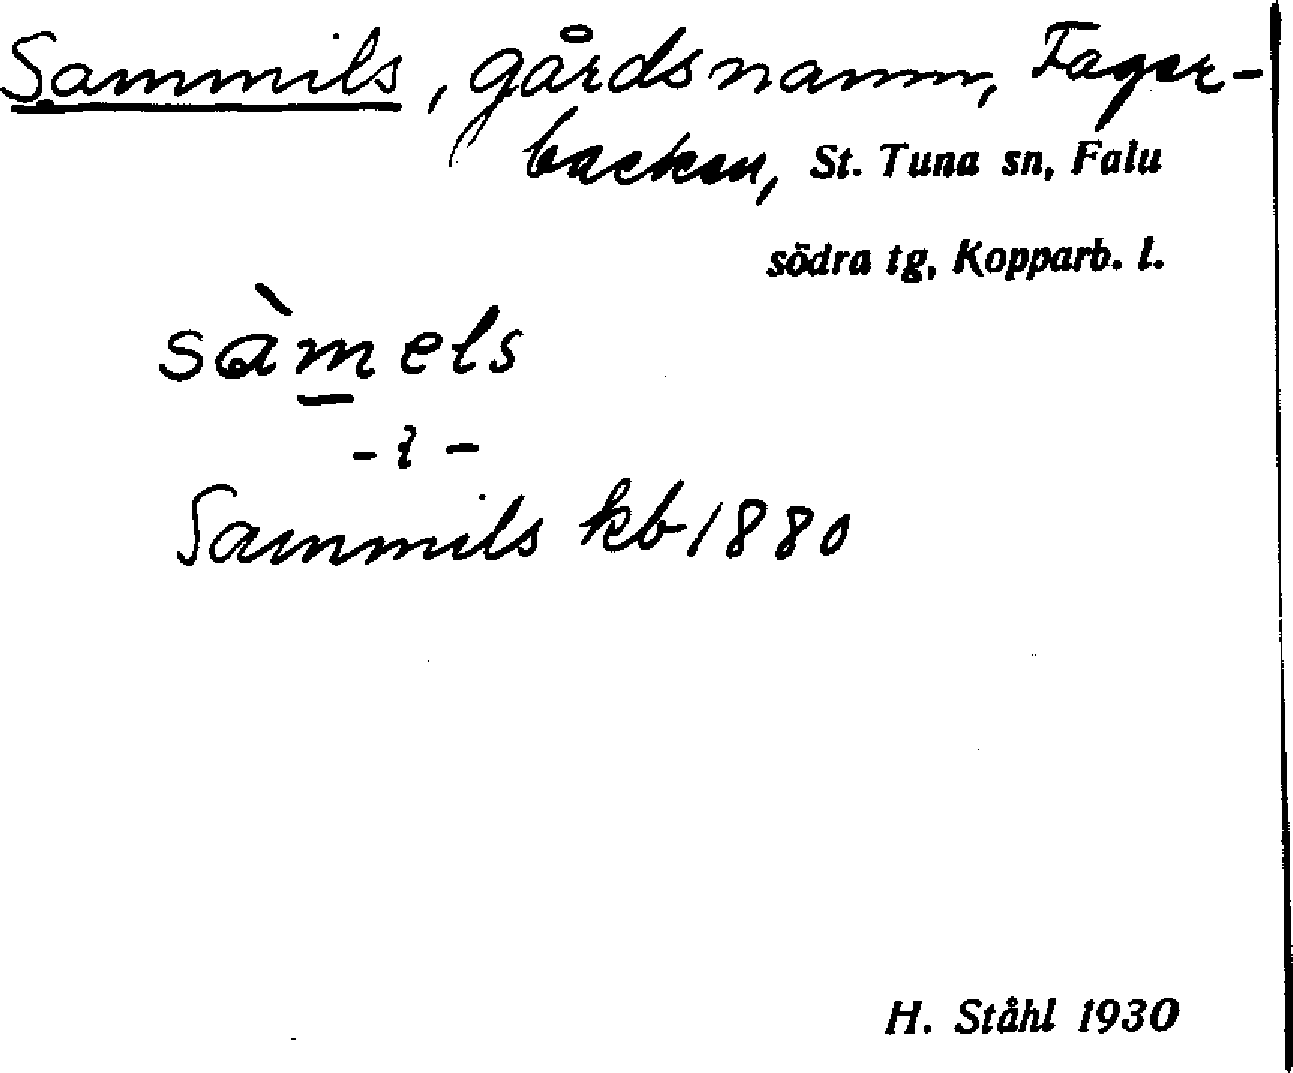 Sammils, gårdsnamn, Fager-
backen, St. Tuna sn, Falu
södra tg, Kopparb. l.
sàmels
- i -
Sammils kb 1880
H. Ståhl 1930